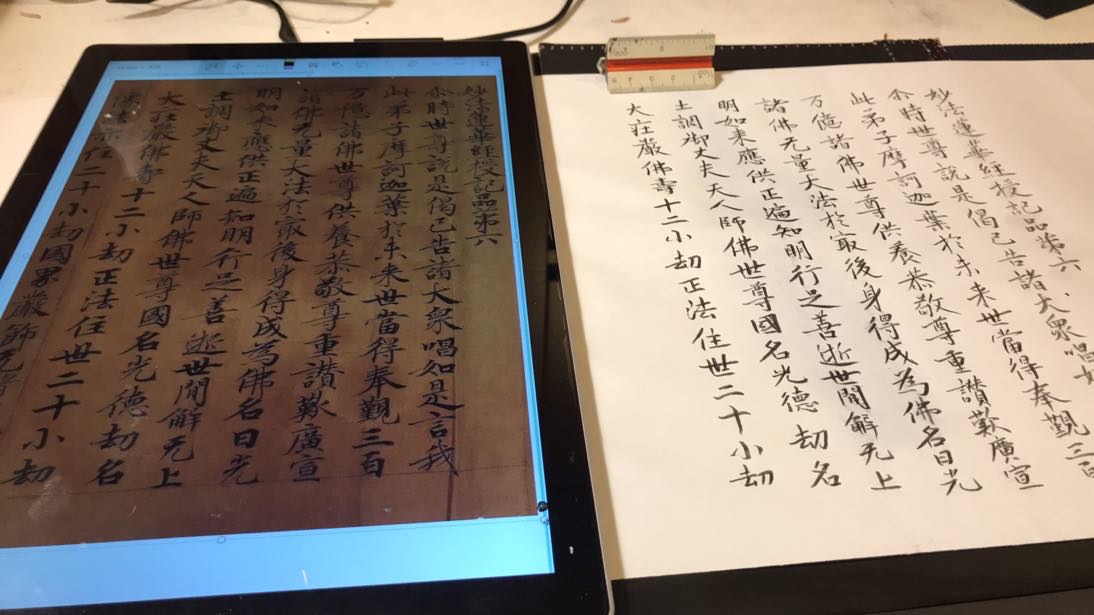 妙法蓮華經授記品第六
尒時世尊說是偈已告諸大眾唱如是言我
此弟子摩訶迦葉於未來世當得奉覲三百
万億諸佛世尊供養恭敬尊重讃歎廣宣
諸佛无量大法於冣後身得成為佛名曰光
明如來應供正遍知明行足善逝世間解无上
士調御丈夫天人師佛世尊國名光德劫名
大莊嚴佛壽十二小劫正法住世二十小劫
像法亦住二十小劫國界嚴飾无
妙法蓮華經授記品第六
尒時世尊說是偈已告諸大眾唱如
此弟子摩訶迦葉於未来世當得奉覲三百
万億諸佛世尊供養恭敬尊重讃歎廣宣
諸佛无量大法於冣後身得成為佛名曰光
明如来應供正遍知明行足善逝世間解无上
士調御丈夫天人師佛世尊國名光德劫名
大莊嚴佛壽十二小劫正法住世二十小劫